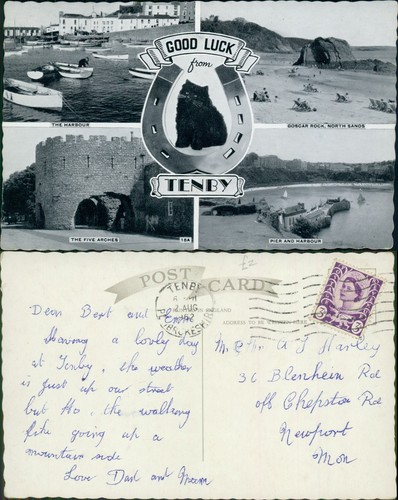 GOOD LUCK
from
THE HARBOUR
GOSCAR ROCK, NORTH SANDS
TENBY
THE FIVE ARCHES
18A
PIER AND HARBOUR
£2
POST CARD
TENBY
AUG
PEMBROKESHIRE
ENGLAND
ADDRESS TO BE WRITTEN HERE
3
3
Dear Bert and
Having a lovely day
at Tenby, the weather
is just up our street
but Ho, the walking
like going up a
mountain side
Love Dad and Mam
Mr & Mrs A J Hanley
36 Blenheim Rd
off Chepstow Rd
Newport
Mon